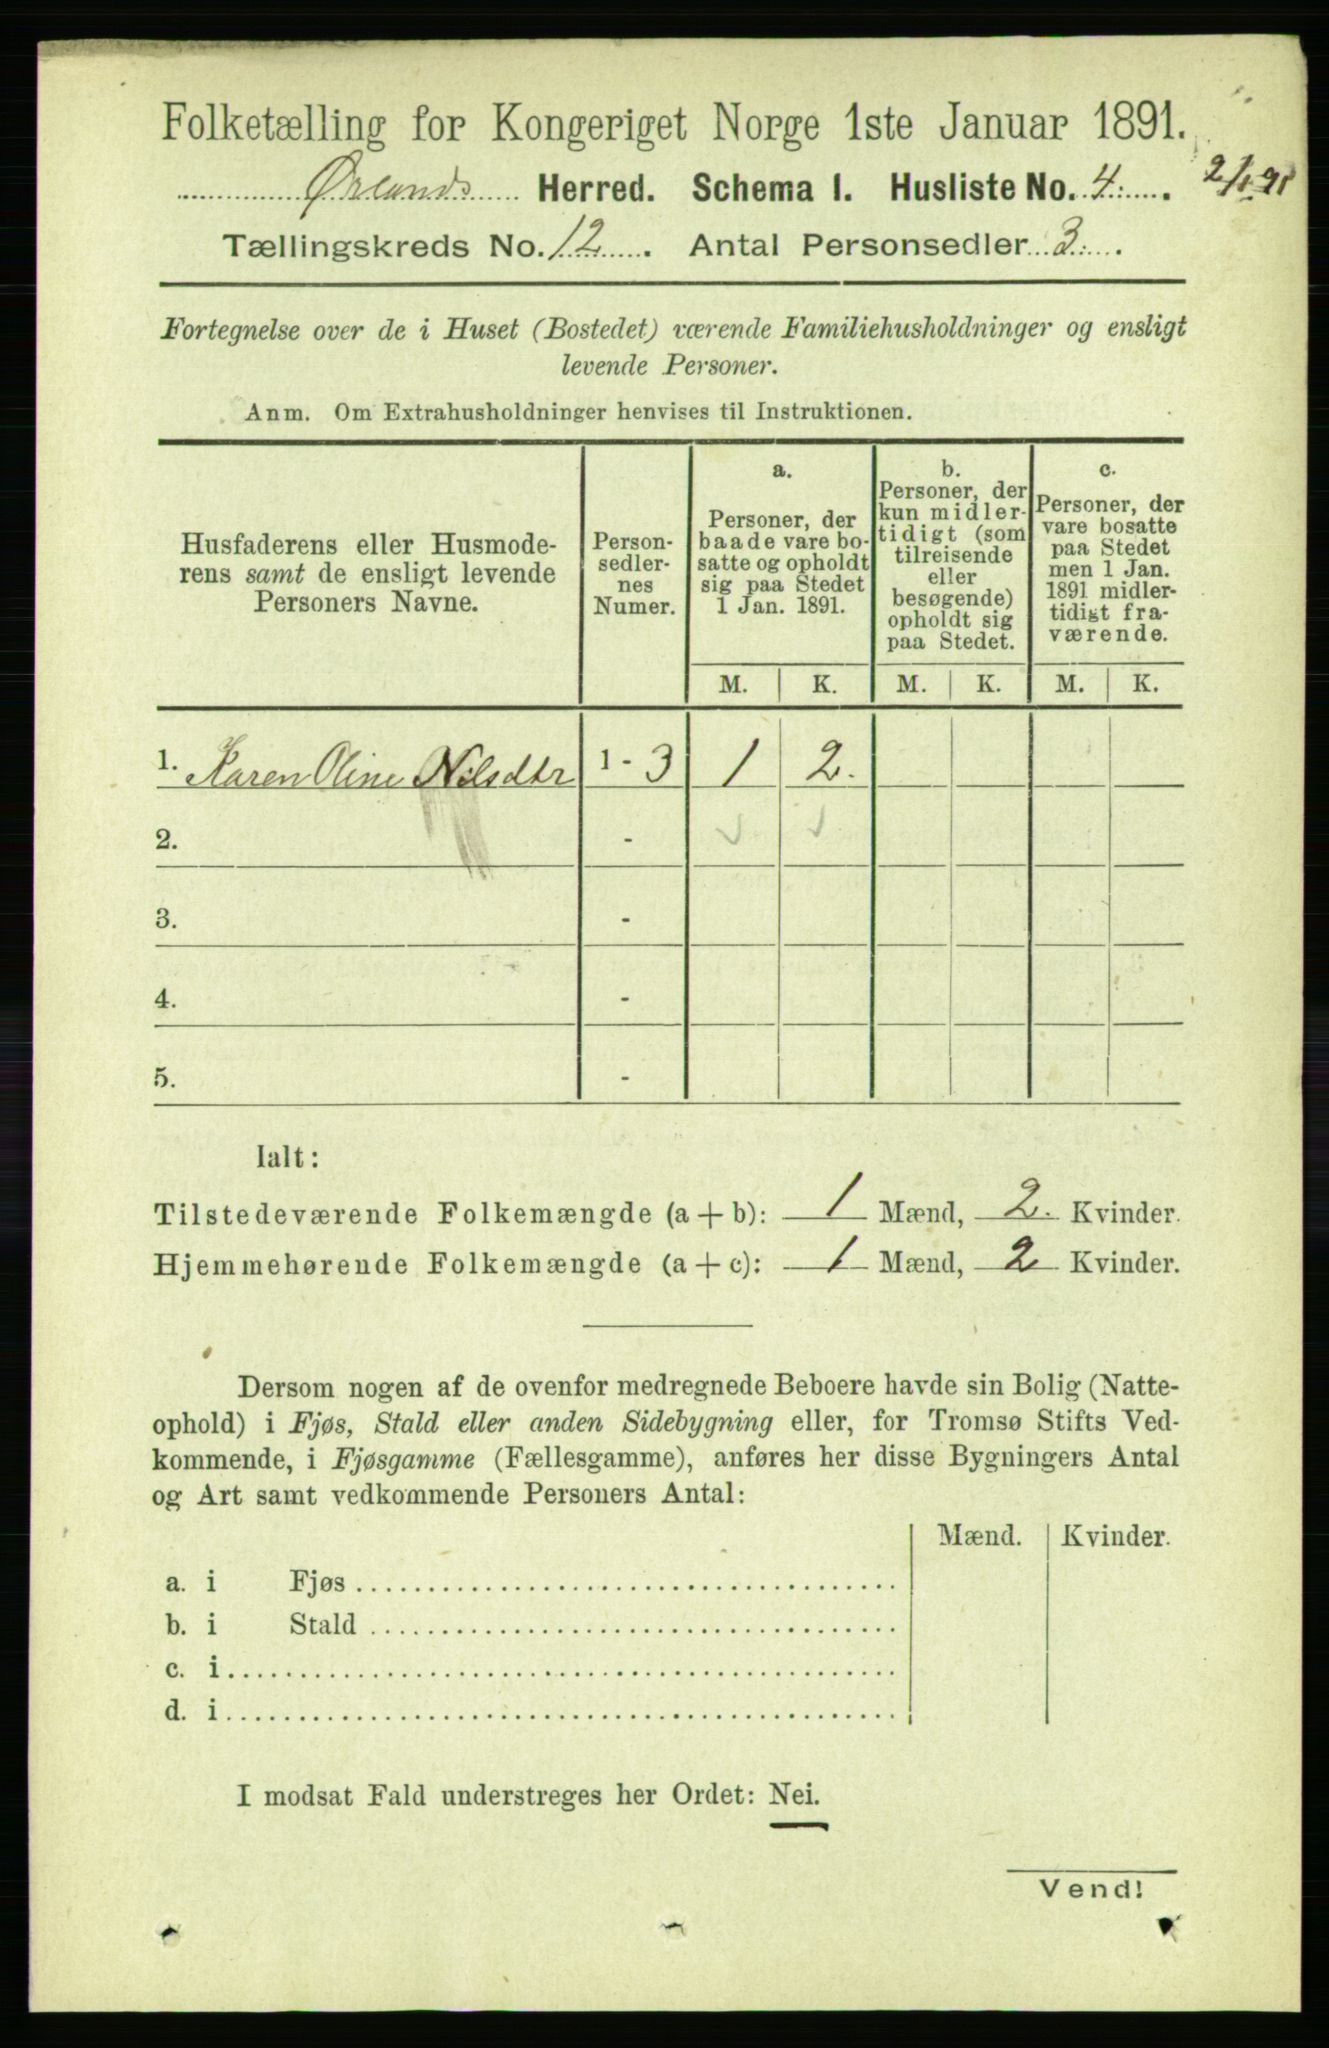 Folketælling for Kongeriget Norge 1ste Januar 1891.
Ørlands Herred. Schema 1. Husliste No. 4. 2/1 91
Tællingskreds No. 12. Antal Personsedler 3.
Fortegnelse over de i Huset (Bostedet) værende Familiehusholdninger og ensligt
levende Personer.
Anm. Om Extrahusholdninger henvises til Instruktionen.
Husfaderens eller Husmode-
rens samt de ensligt levende
Personers Navne.
Person-
sedler-
nes
Numer.
a.
Personer, der
baade vare bo-
satte og opholdt
sig paa Stedet
1 Jan. 1891.
b.
Personer, der
kun midler-
tidigt (som
tilreisende
eller
besøgende)
opholdt sig
paa Stedet.
c.
Personer, der
vare bosatte
paa Stedet
men 1 Jan.
1891 midler-
tidigt fra-
værende.
M. K. M. K. M. K.
1. Karen Oline Nilsdtr 1 - 3 1 2.
2. -
3. -
4. -
5. -
Ialt:
Tilstedeværende Folkemængde (a + b): 1 Mænd, 2. Kvinder.
Hjemmehørende Folkemængde (a + c): 1 Mænd, 2 Kvinder.
Dersom nogen af de ovenfor medregnede Beboere havde sin Bolig (Natte-
ophold) i Fjøs, Stald eller anden Sidebygning eller, for Tromsø Stifts Ved-
kommende, i Fjøsgamme (Fællesgamme), anføres her disse Bygningers Antal
og Art samt vedkommende Personers Antal:
Mænd. Kvinder.
a. i Fjøs
b. i Stald
c. i
d. i
I modsat Fald understreges her Ordet: Nei.
Vend!